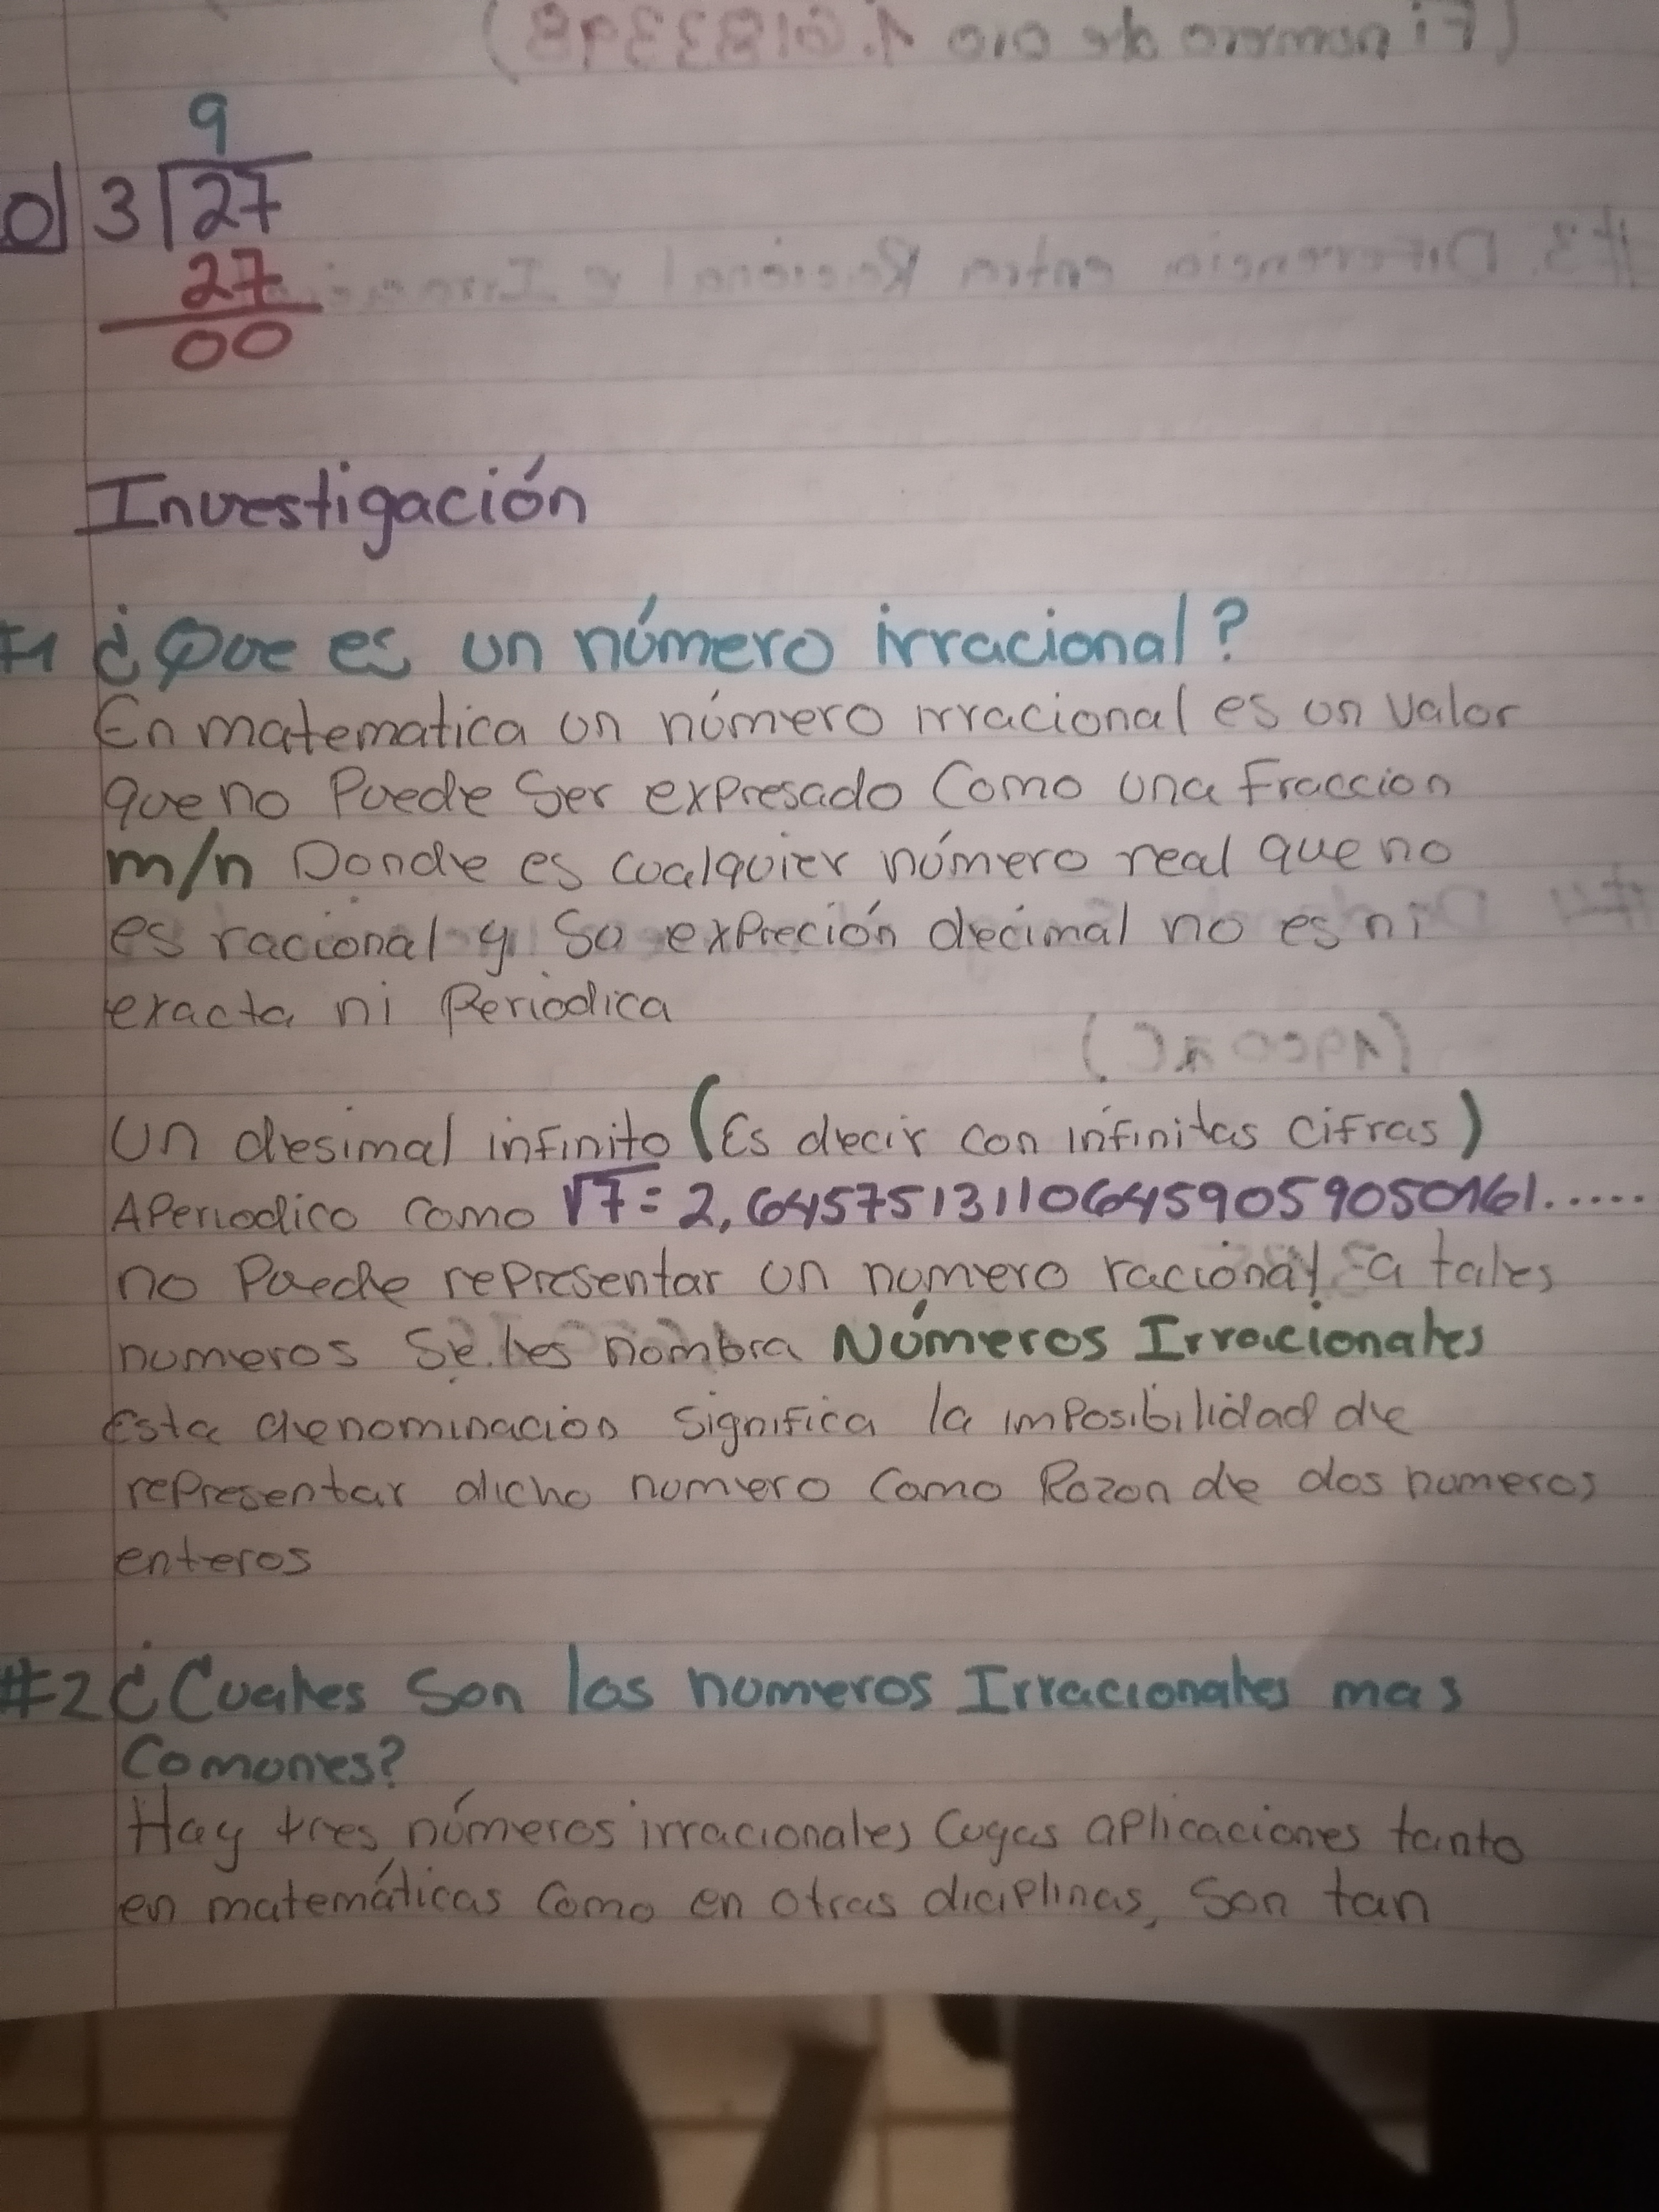 9
o) 3 27
27
00
Investigación
#1 ¿Que es un número irracional?
En matematica un número irracional es un valor
que no Puede Ser expresado Como una Fraccion
m/n Donde es cualquier número real que no
es racional y Su expreción decimal no es ni
exacta ni Periodica
Un desimal infinito (Es decir con infinitas cifras)
APeriodico como √7 = 2,64575131106459059050161.....
no Puede rePresentar un numero racional a tales
numeros Se les nombra Números Irracionales
Esta denominacion significa la imPosibilidad de
rePresentar dicho numero como Razon de dos numeros
enteros
#2 ¿Cuales Son los numeros Irracionales mas
Comunes?
Hay tres números irracionales Cuyas aPlicaciones tanto
en matemáticas Como en otras diciPlinas, Son tan